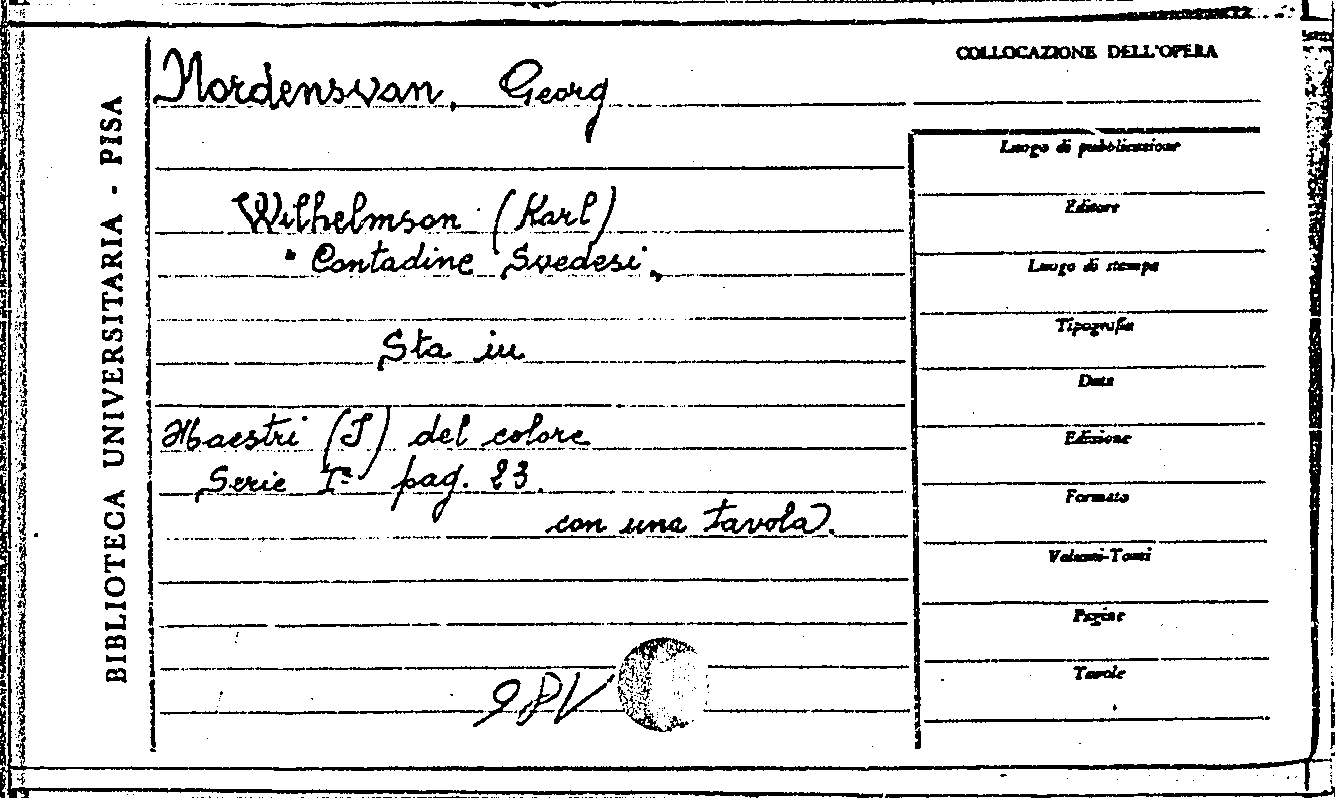 BIBLIOTECA UNIVERSITARIA - PISA
Nordensvan, Georg
Wilhelmson (Karl)
"Contadine Svedesi"
Sta in
Maestri (I) del colore
Serie Iª pag. 23.
con una tavola.
COLLOCAZIONE DELL'OPERA
Luogo di pubblicazione
Editore
Luogo di stampa
Tipografia
Data
Edizione
Formato
Volumi-Tomi
Pagine
Tavole